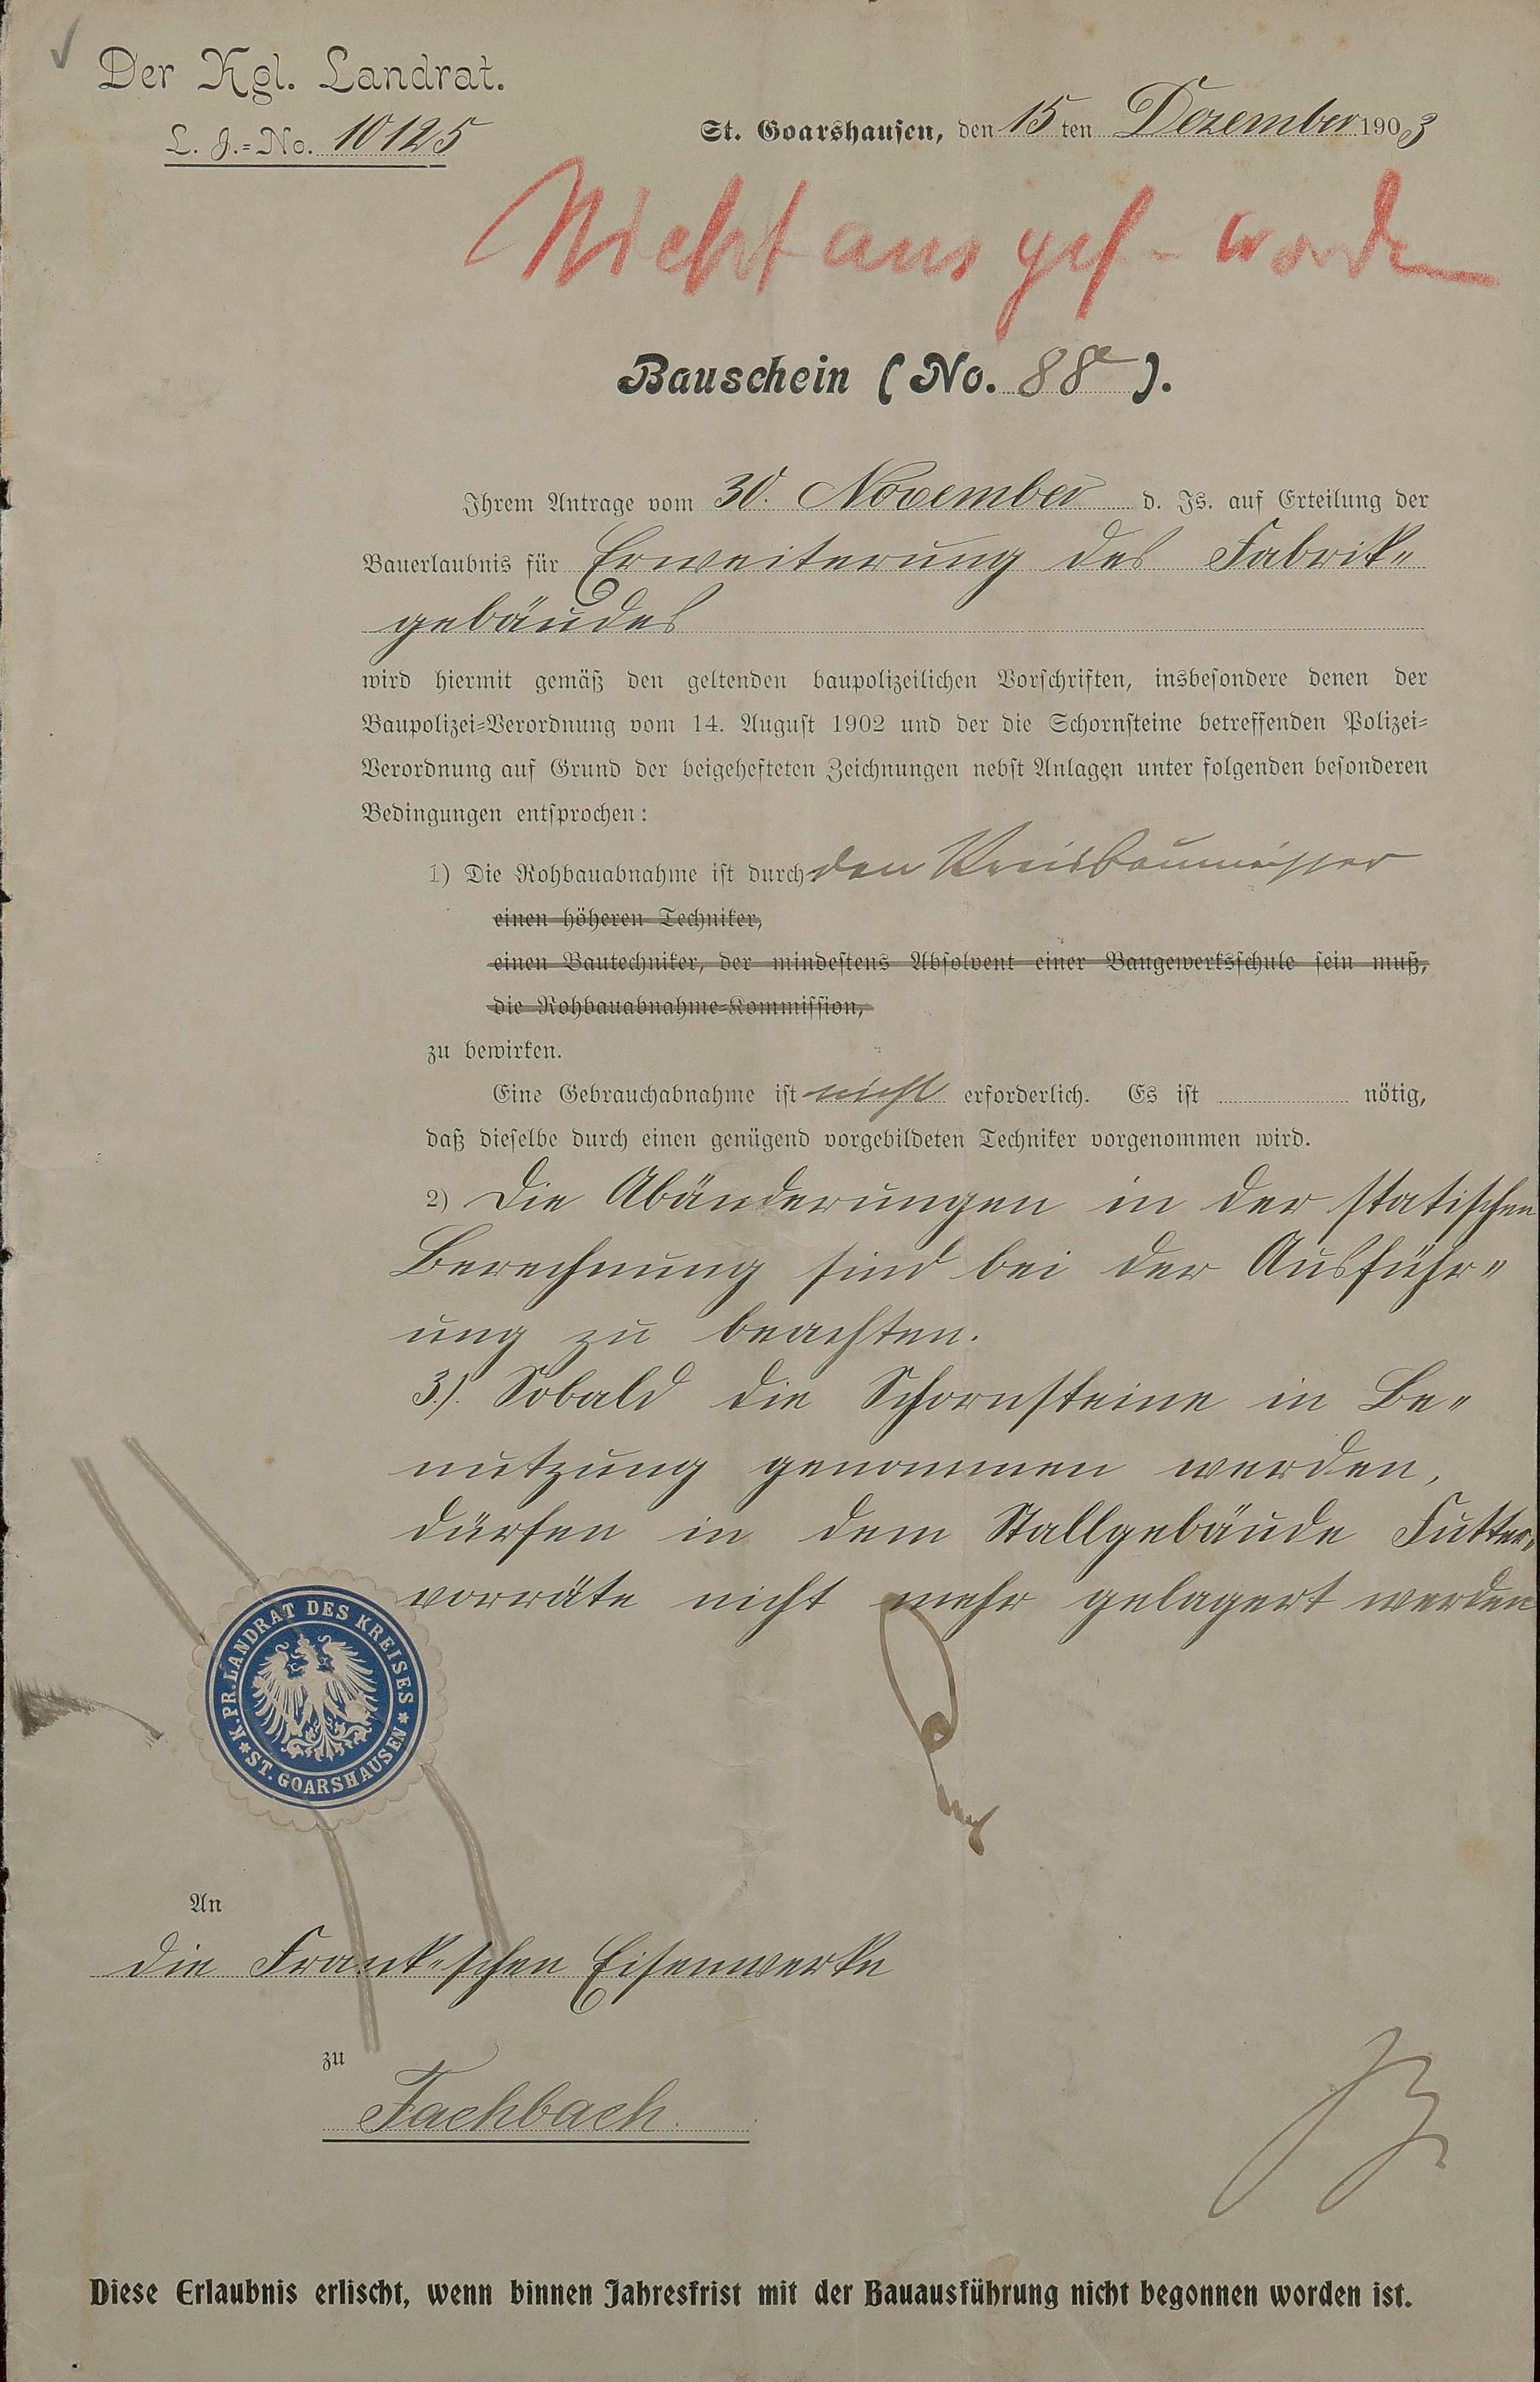 Der Kgl. Landrat.
L. J.=No. 10125
St. Goarshausen, den 15 ten Dezember 1903
Nicht ausgef- worden
Bauschein (No. 88a).
Ihrem Antrage vom 30. November d. Js. auf Erteilung der
Bauerlaubnis für Erweiterung des Fabrik=
gebäudes
wird hiermit gemäß den geltenden baupolizeilichen Vorschriften, insbesondere denen der
Baupolizei=Verordnung vom 14. August 1902 und der die Schornsteine betreffenden Polizei=
Verordnung auf Grund der beigehefteten Zeichnungen nebst Anlagen unter folgenden besonderen
Bedingungen entsprochen:
1) Die Rohbauabnahme ist durch den Kreisbaumeister
einen höheren Techniker,
einen Bautechniker, der mindestens Absolvent einer Baugewerksschule sein muß,
die Rohbauabnahme=Kommission,
zu bewirken.
Eine Gebrauchabnahme ist nicht erforderlich. Es ist nötig,
daß dieselbe durch einen genügend vorgebildeten Techniker vorgenommen wird.
2) Die Abänderungen in der statischen
Berechnung sind bei der Ausführ=
ung zu beachten.
3.) Sobald die Schornsteine in Be=
nutzung genommen werden,
dürfen in dem Stallgebäude Futter=
vorräte nicht mehr gelagert werden
K. PR. LANDRAT DES KREISES
ST. GOARSHAUSEN
An
die Frank'schen Eisenwerke
zu
Fachbach.
Diese Erlaubnis erlischt, wenn binnen Jahresfrist mit der Bauausführung nicht begonnen worden ist.